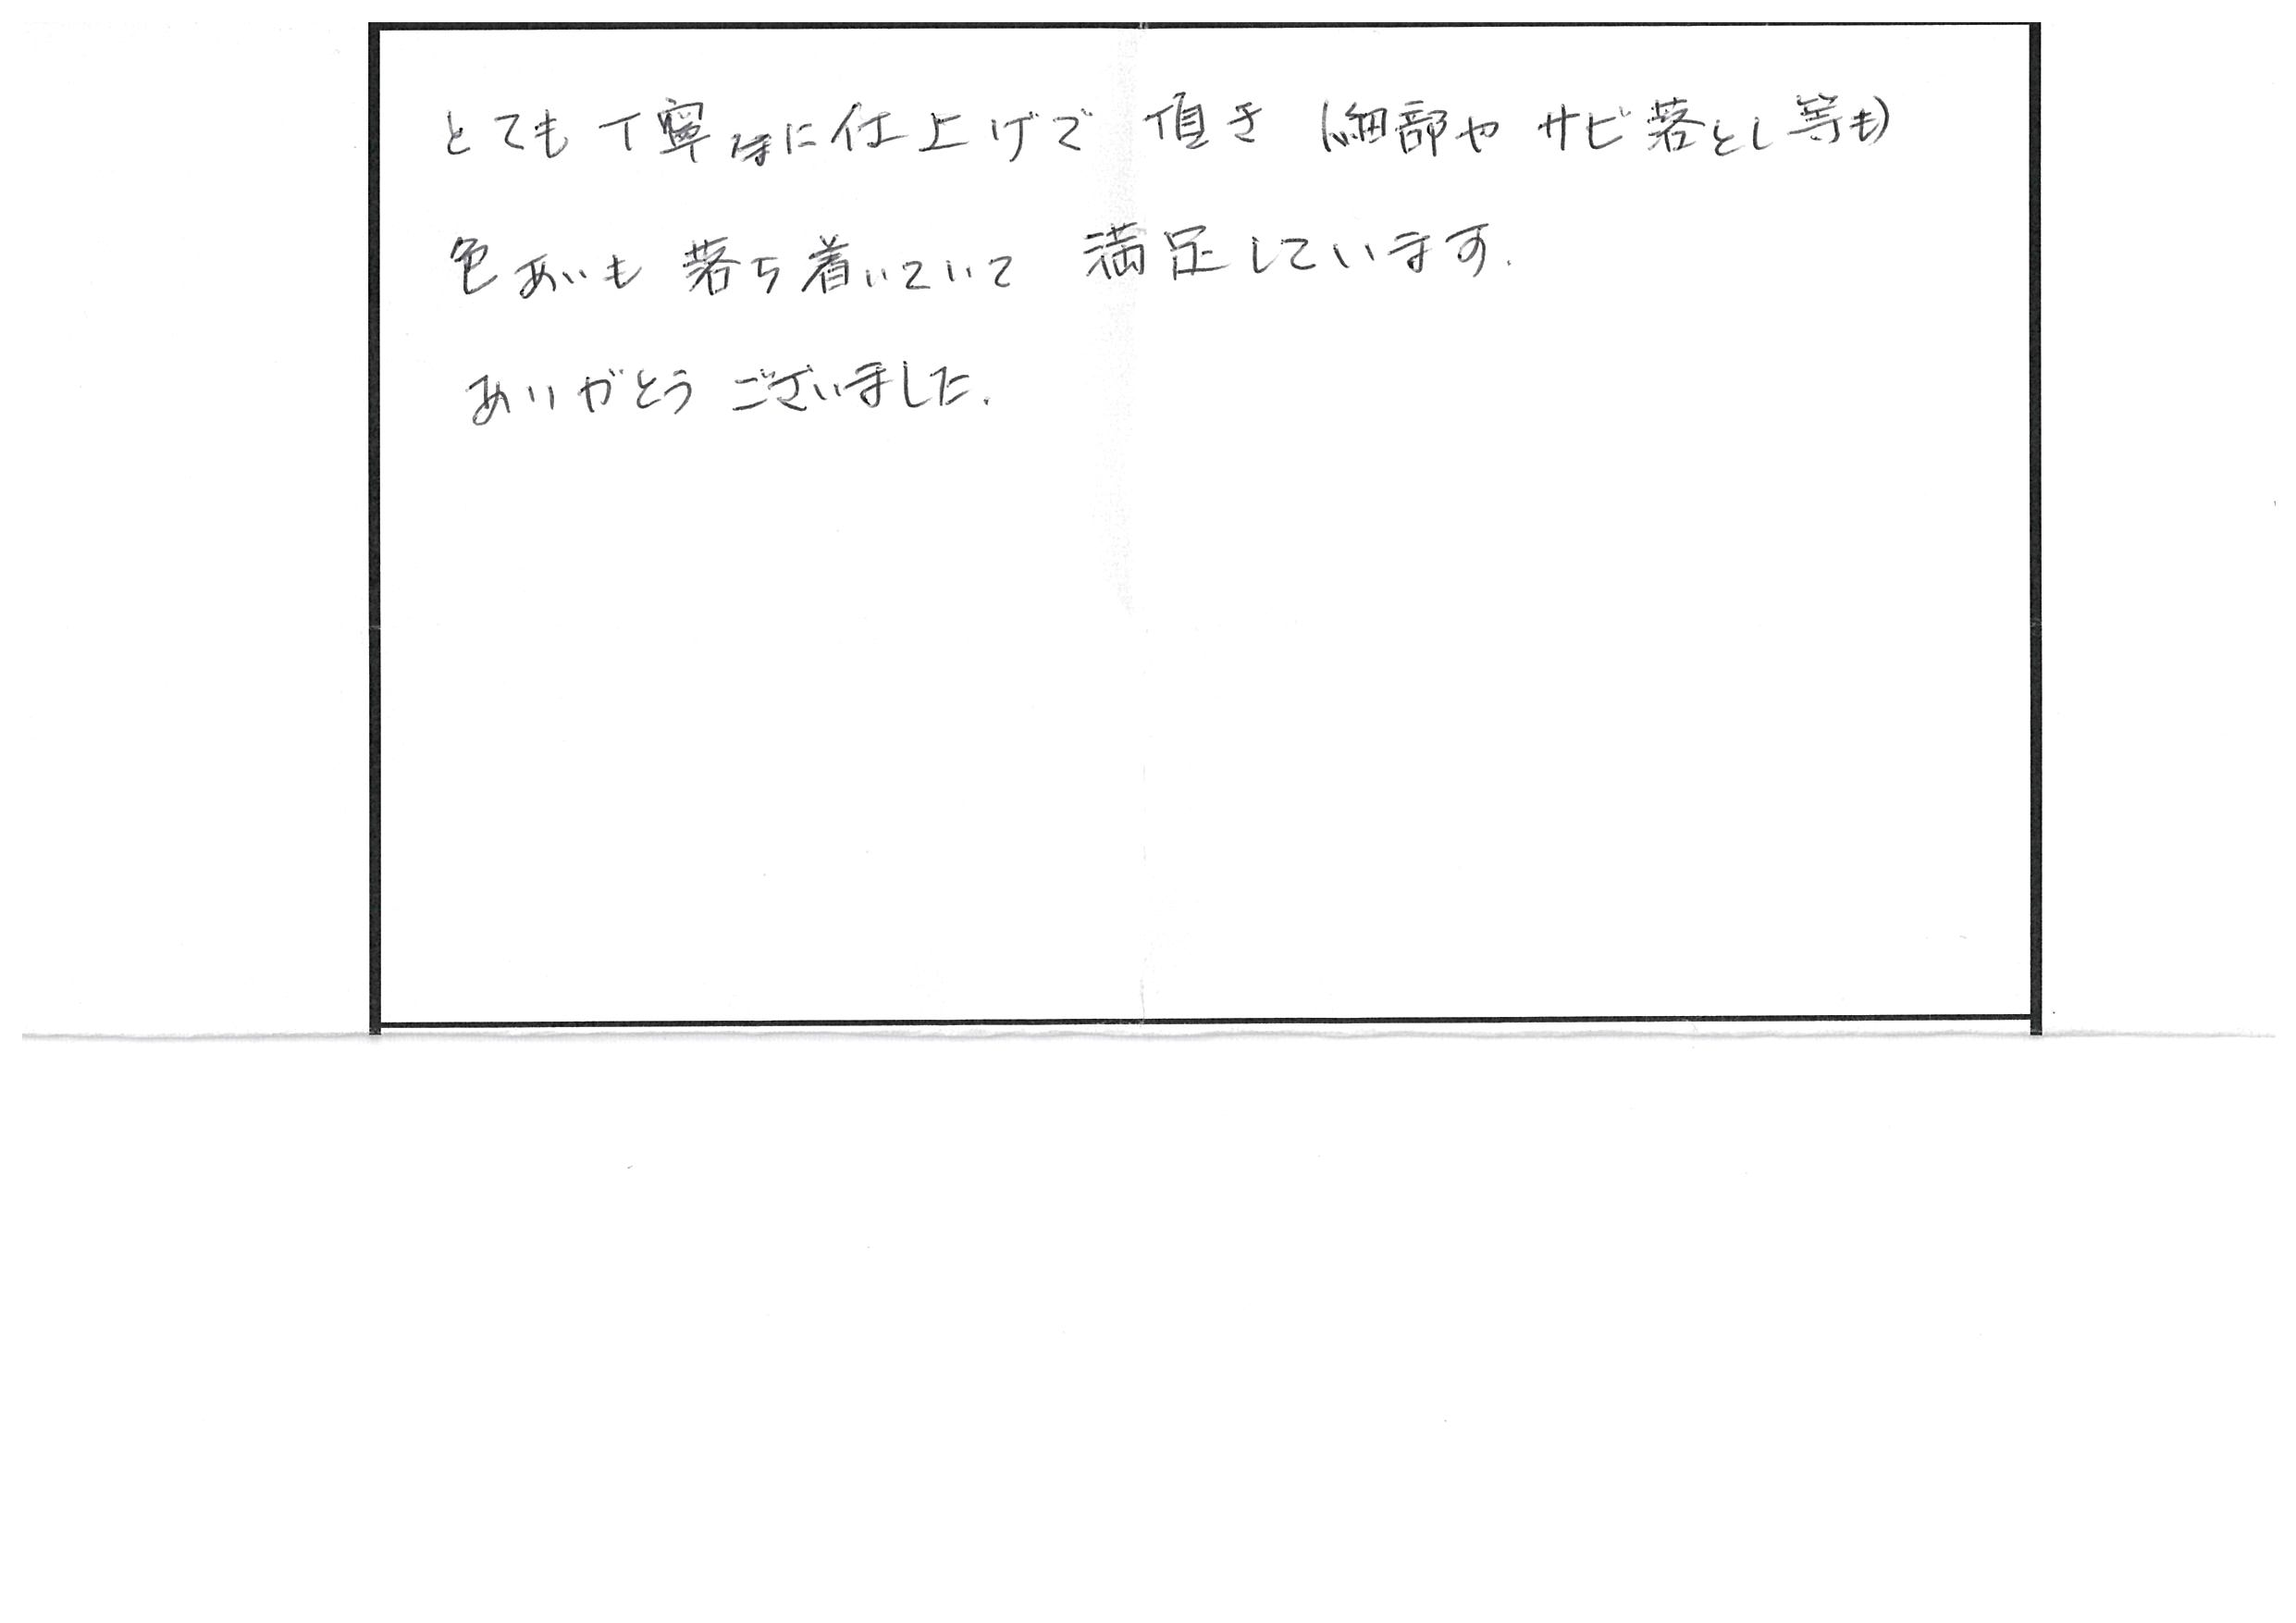 とても丁寧に仕上げで 頂き (細部や サビ落とし等も)
色あいも 落ち着いていて 満足しています.
ありがとう ございました.